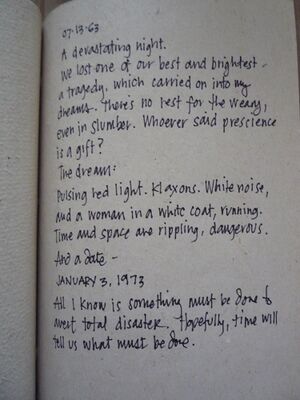 07-13-63
A devastating night.
We lost one of our best and brightest -
a tragedy, which carried on into my
dreams. There's no rest for the weary,
even in slumber. Whoever said prescience
is a gift?
The dream:
Pulsing red light. Klaxons. White noise,
and a woman in a white coat, running.
Time and space are rippling, dangerous.
And a date -
JANUARY 3, 1973
All I know is something must be done to
avert total disaster. Hopefully, time will
tell us what must be done.